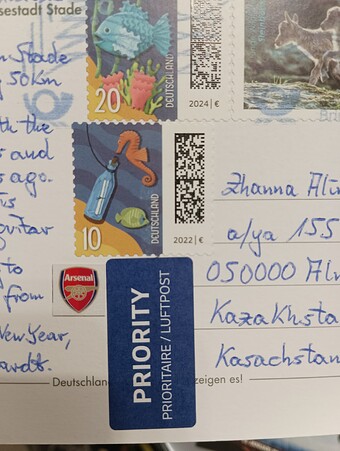 sestadt Stade
Stade
50km
20
DEUTSCHLAND
2024 | €
th the
s and
s ago.
10
DEUTSCHLAND
2022 | €
to
from
New Year,
ardt.
Arsenal
PRIORITY
PRIORITAIRE / LUFTPOST
Zhanna Ali
a/ya 155
050000 Al
Kazakhsta
Kasachstan
Deutschland
zeigen es!